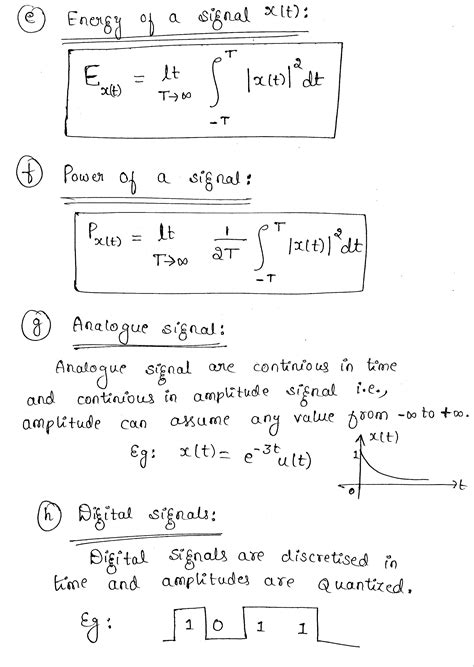 (e) Energy of a signal x(t):
E_x(t) = lt_{T→∞} ∫_{-T}^{T} |x(t)|² dt
(f) Power of a signal:
P_x(t) = lt_{T→∞} 1/2T ∫_{-T}^{T} |x(t)|² dt
(g) Analogue signal:
Analogue signal are continious in time
and continious in amplitude signal i.e.,
amplitude can assume any value from -∞ to +∞.
Eg: x(t) = e^{-3t} u(t)
x(t)
1
0
t
(h) Digital signals:
Digital signals are discretised in
time and amplitudes are Quantized.
Eg: 1 0 1 1